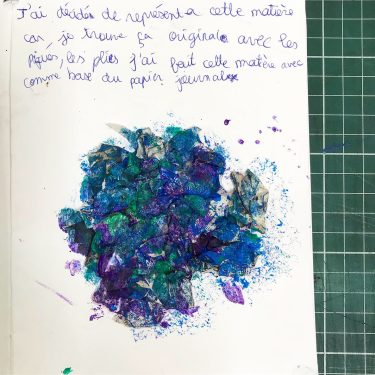 J'ai décidé de représenter cette matière
car, je trouve ça original avec les
piques, les plies j'ai fait cette matière avec
comme base du papier journal